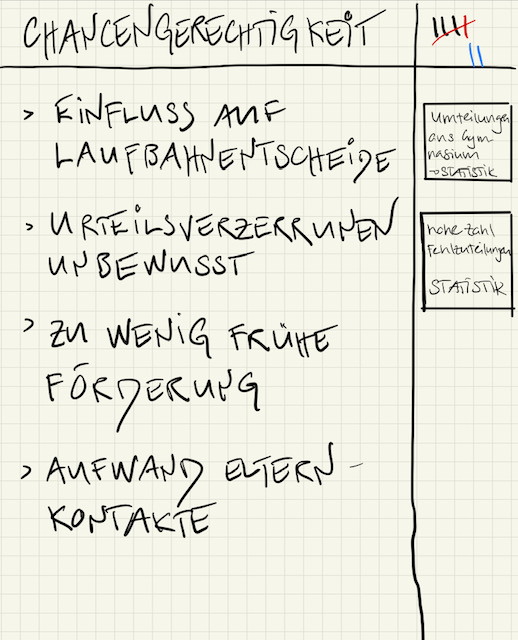 CHANCENGERECHTIGKEIT
> EINFLUSS AUF
LAUFBAHNENTSCHEIDE
> URTEILSVERZERRUNEN
UNBEWUSST
> ZU WENIG FRÜHE
FÖRDERUNG
> AUFWAND ELTERN-
KONTAKTE
Umteilungen
ans Gym-
nasium
→ STATISTIK
hohe Zahl
Fehlzuteilungen
STATISTIK